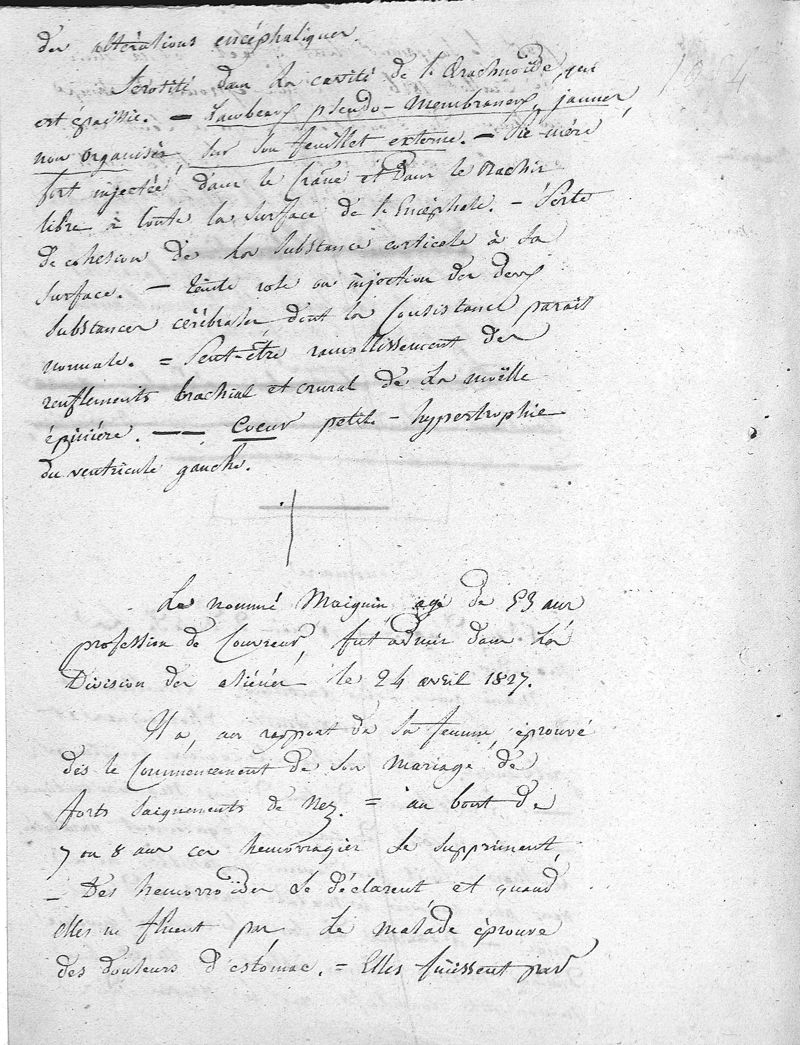 des altérations encéphaliques
Sérosité dans la cavité de l'Arachnoïde, qui
est épaissie. = Lambeaux pseudo-membraneux, jaunes,
non organisés, sur son feuillet externe. - Pie-mère
fort injectée dans le Crâne et dans le Rachis
libre à toute la surface de l'Encéphale. - Perte
de cohésion de la substance corticale à sa
surface. - teinte rose ou injection des deux
substances cérébrales, dont la Consistance parait
normale. = Peut-être ramollissement des
renflements brachial et crural de la moëlle
épinière. — — Coeur petit - hypertrophie
du ventricule gauche.
Le nommé Maiguin, agé de 53 ans
profession de Couvreur, fut admis dans la
Division des aliénés le 24 avril 1827.
Il a, au rapport de sa femme, éprouvé
dès le Commencement de son mariage de
forts saignements de Nez. = au bout de
7 ou 8 ans ces hemorragies se suppriment,
- Des hemorroïdes se déclarent et quand
elles ne fluent pas, le malade éprouve
des douleurs d'estomac. = Elles finissent par